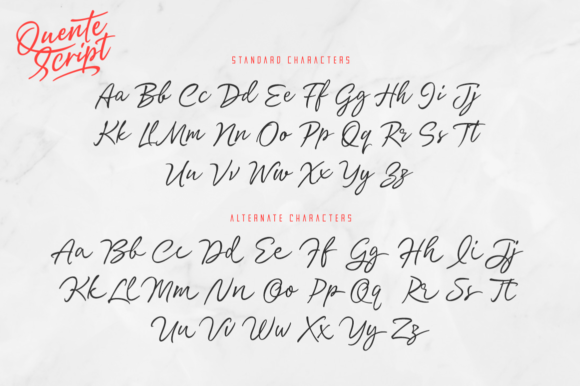 Quente
Script
STANDARD CHARACTERS
Aa Bb Cc Dd Ee Ff Gg Hh Ii Jj
Kk Ll Mm Nn Oo Pp Qq Rr Ss Tt
Uu Vv Ww Xx Yy Zz
ALTERNATE CHARACTERS
Aa Bb Cc Dd Ee Ff Gg Hh Ii Jj
Kk Ll Mm Nn Oo Pp Qq Rr Ss Tt
Uu Vv Ww Xx Yy Zz